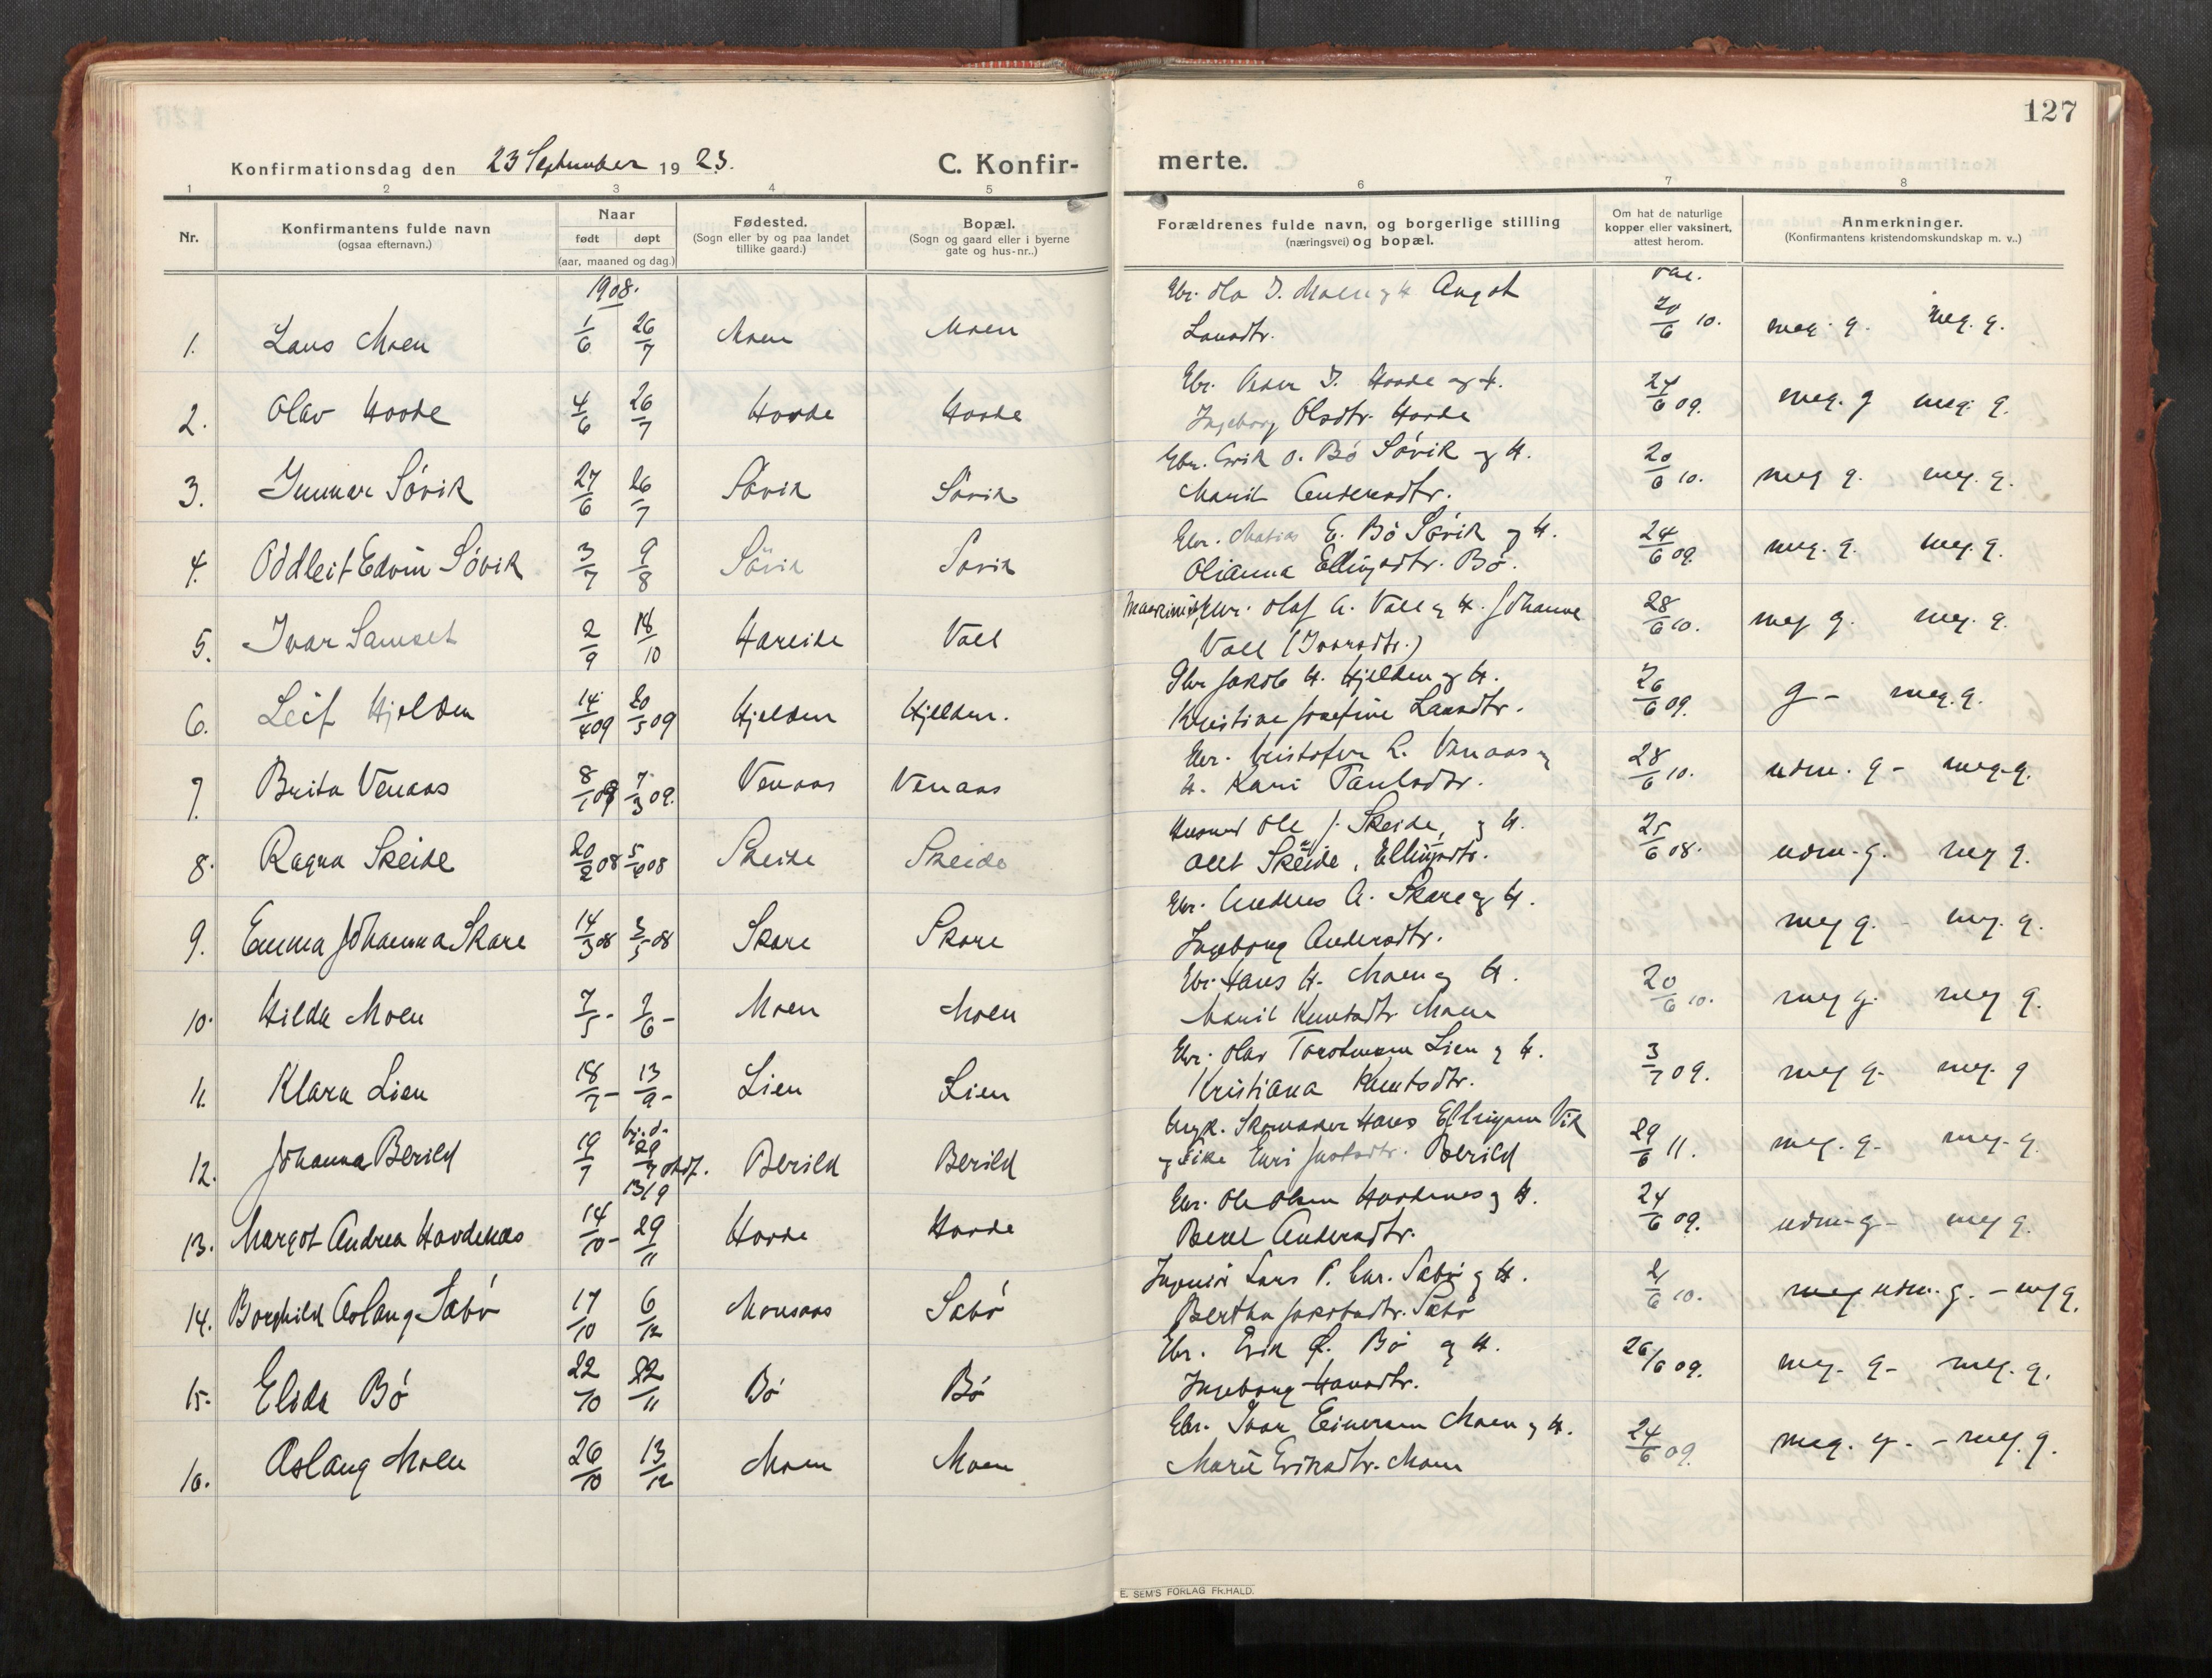 127
Konfirmationsdag den 23 September 1923. C. Konfirmerte.
1 2 3 4 5 6 7 8
Nr. Konfirmantens fulde navn (ogsaa efternavn.) Naar født døpt (aar, maaned og dag.) Fødested. (Sogn eller by og paa landet tillike gaard.) Bopæl. (Sogn og gaard eller i byerne gate og hus-nr..) Forældrenes fulde navn, og borgerlige stilling (næringsvei) og bopæl. Om hat de naturlige kopper eller vaksinert, attest herom. Anmerkninger. (Konfirmantens kristendomskundskap m. v..)
1908.
1. Lars Moen 1/6 26/7 Moen Moen Gbr. Ola I. Moen og H. 20/6 10. meg. g. meg. g.
2. Olav Hovde 4/6 26/7 Hovde Hovde Gbr. Peder I. Hovde og H.
Ingeborg Olsdtr. Hovde 24/6 09. meg. g meg. g.
3. Gunnar Søvik 27/6 26/7 Søvik Søvik Gbr. Erik O. Bø Søvik og H.
Marit Andersdtr. 20/6 10. meg g. meg. g.
4. Oddleif Edvin Søvik 3/7 9/8 Søvik Søvik Gbr. Matias E. Bø Søvik og H.
Olianna Ellingsdtr. Bø. 24/6 09. meg. g. meg. g.
5. Ivar Samset 2/9 18/10 Hareide Vall Gbr. Olaf A. Vall og H. Johanne
Vall (Ivarsdtr.) 28/6 10. meg g. meg. g.
6. Leif Hjelden 14/4 09 20/5 09 Hjelden Hjellden. Gbr Jakob H. Hjelden og H.
Kristine Josefine Larsdtr. 26/6 09. g - meg. g.
7. Brita Venaas 8/1 09 7/3 09. Venaas Venaas Gbr. Kristofer L. Venaas og
H. Kari Paulsdtr. 28/6 10. udm. g - meg. g.
8. Ragna Skeide 20/2 08 5/4 08 Skeide Skeide Ole J. Skeide, og H.
Skeide, Ellingsdtr. 25/6 08. udm. g. meg g.
9. Emma Johanna Skare 14/3 08 3/5 08 Skare Skare Gbr. Anders A. Skare og H.
Ingeborg Andersdtr. meg g. - meg. g.
10. Hilda Moen 7/5 - 7/6 - Moen Moen Gbr. Hans H. Moen og H.
Marit Knutsdtr Moen 20/6 10. meg g. meg g.
11. Klara Lien 18/7 - 13/9 - Lien Lien Gbr. Olav Torstensen Lien og H.
Kristiana Knutsdtr. 3/7 09. meg g. meg. g
12. Johanna Berild 19/7 hj. d. 29/7 stadf. 13/9 Berild Berild Ungk. Skomaker Hans Ellingsen Vik
og Pike Guri Berild 29/6 11. meg. g. meg. g.
13. Margot Andrea Hovdenæs 14/10 - 29/11 Hovde Hovde Gbr. Ole Olsen Hovdenes og H.
Beret Andersdtr. 24/6 09. udm - g - meg g.
14. Borghild Aslaug Sæbø 17/10 6/12 Monsaas Sæbø Ingeniør Lars P. Chr. Sæbø og H.
Bertha Jakobsdtr. Sæbø 21/6 10. meg udm. g. - meg g.
15. Elida Bø 22/10 22/11 Bø Bø Gbr. Erik Bø og H.
Ingeborg Hansdtr. 26/6 09. meg. g - meg. g.
16. Aslaug Moen 26/10 13/12 Moen Moen Gbr. Ivar Einersen Moen og H.
Marie Eriksdtr. Moen 24/6 09. meg. g. - meg. g.
E. SEM'S FORLAG FR.HALD.